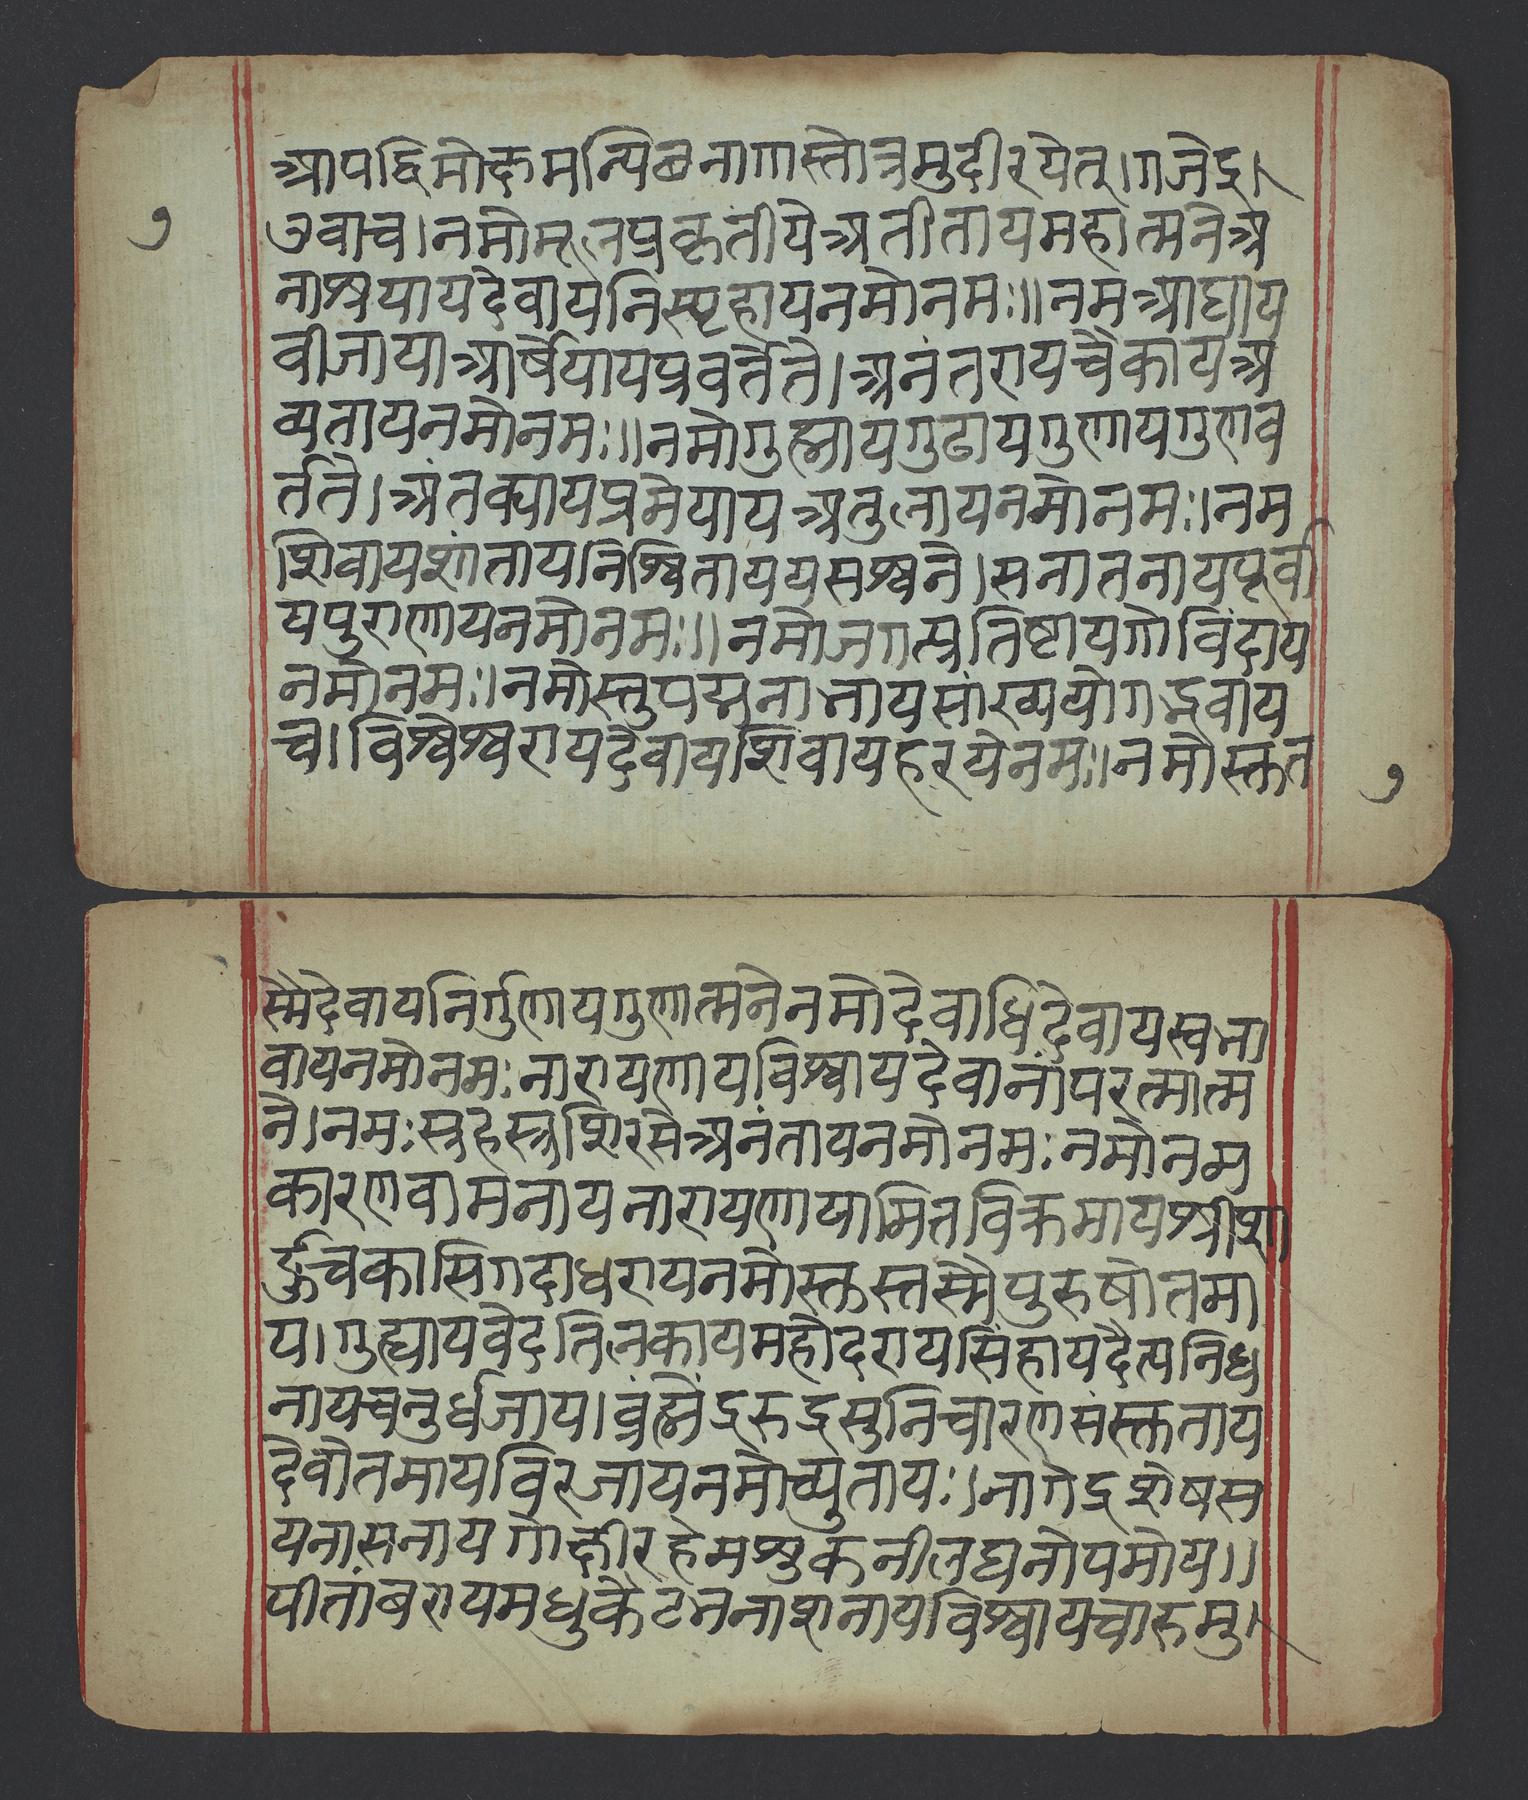 आपद्विमोक्षमन्विछनागास्तोत्रमुदीरयेत्।गजेंद्र
७
उवाच।नमोमूलप्रकृतीयेअतीतायमहात्मनेअ
नाश्रयायदेवायनिस्पृहायनमोनमः॥नमआद्याय
वीजायाआर्षेयायप्रवर्तेते।अनंतरायचैकायअ
व्यतायनमोनमः॥नमोगुह्मायगुढायगुणायगुणव
र्तिते।अंतक्यायप्रमेयायअतुलायनमोनमः।नम
शिवायशांतायनिश्चितायपसश्वने।सनातनायपूर्वा
यपुराणायनमोनमः॥नमोजगत्प्रतिष्टायगोविंदाय
नमोनमः।नमोस्तुपद्मनाभायसांख्ययोगद्भवाय
च।विश्वेश्वरायदेवायशिवायहरयेनमः।नमोस्त्कत
७
स्मैदेवायनिर्गुणायगुणात्मनेनमोदेवाधिदेवायस्वभा
वायनमोनमः नारायणायविश्वायदेवानांपरत्मात्म
ने।नमःस्तहस्त्रशिरसेअनंतायनमोनमः नमोनम
कारणवामनायनारायणायामितविक्रमायश्रीशा
र्ङ्गचकासिगदाधरायनमोस्क्तस्तस्मैपुरुषोतमा
य।गुह्यायवेदतिलकायमहोदरायसिंहायदैत्यनिध
नायचतुर्धजाय।व्रंह्मेंद्ररुद्रमुनिचारणसंस्क्तताय
देवोतमायविरजायनमोच्युतायः।नागेद्रशेषस
यनासनायगोक्षीरहेमशुकनीलघनोपमोय॥
पीतांबरायमधुकेटभनाशनायविश्वायचारुमु